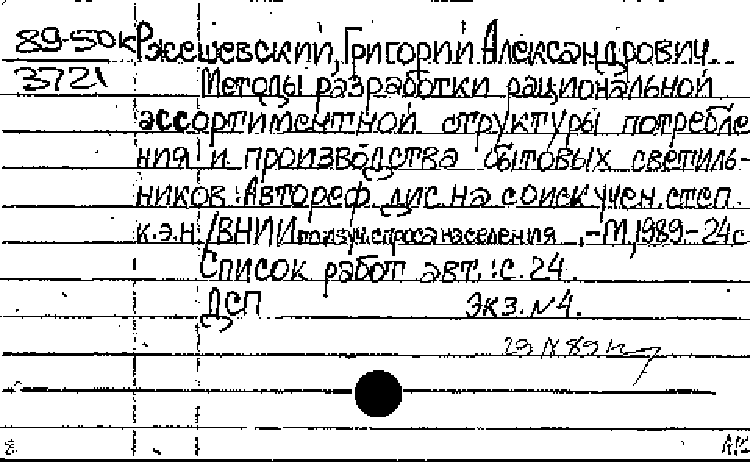 89-50к Ржешевский, Григорий Александрович.
3721 Методы разработки рациональной
ассортиментной структуры потребле
ния и производства бытовых светиль-
ников: Автореф. дис. на соиск. учен. степ.
к.э.н. /ВНИИ по изуч. спроса населения, -М, 1989.-24с
Список работ авт.: с. 24.
ДСП Экз. №4.